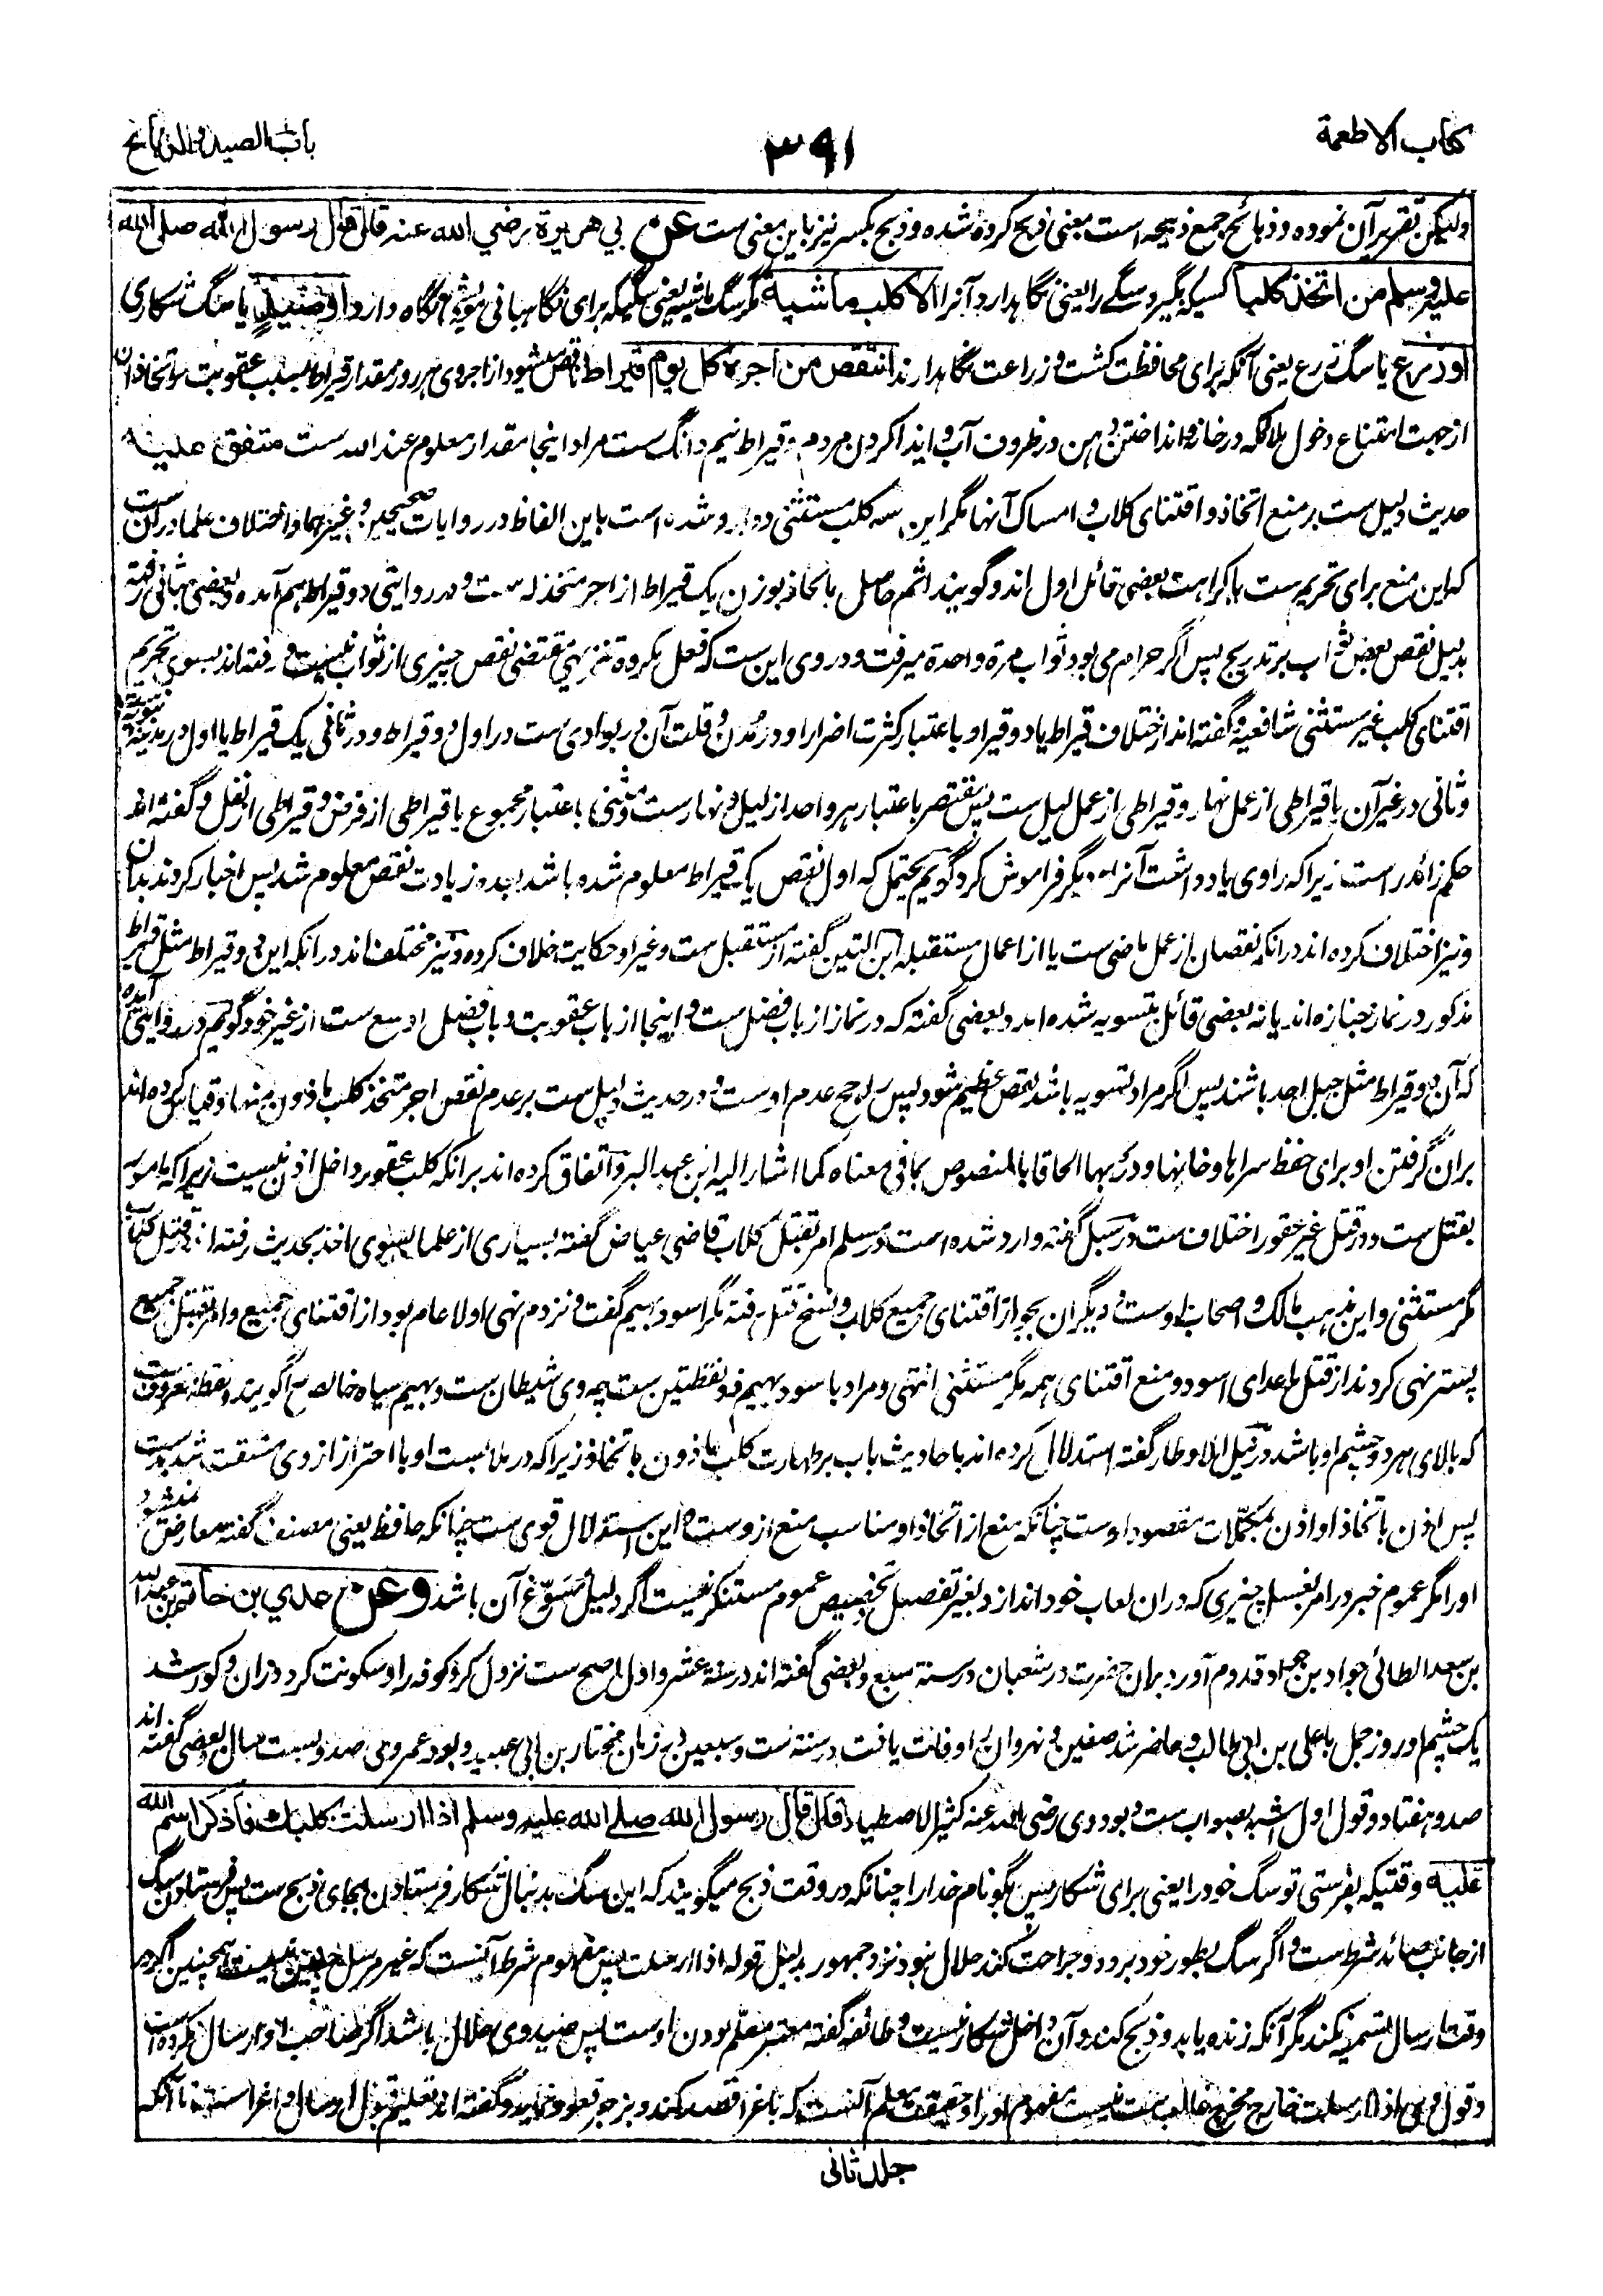 کتاب الاطعمة
۳۹۱
باب الصید والذبائح
ولیکن تقریر آن نموده و ذبائح جمع ذبیحه است بمعنی ذبح کرده شده و ذبح بکسر نیز باین معنی ست عن بي هريرة رضي الله عنه قال قال رسول الله صلى الله
عليه وسلم من اتخذ كلبا کسیکه بگیرد سگے را یعنی نگاهدارد آنرا الا كلب ماشية مگر سگ ماشیه یعنی سگیکه برای نگاهبانی مویشی نگاه دارد او صيد یا سگ شکاری
او زرع یا سگ زرع یعنی آنکه برای محافظت کشت و زراعت نگاهدارند انتقص من اجره كل يوم قيراط ناقص میشود از اجر وی هر روز مقدار قیراط بسبب عقوبت سو اتخاذ آن
از جهت امتناع دخول ملائکه در خانه و انداختن دهن در ظروف آب و ایذا کردن مردم و قیراط نیم دانگ ست مراد اینجا مقدار معلوم عند الله ست متفق عليه
حدیث دلیل ست بر منع اتخاذ و اقتنای کلاب و امساک آنها مگر این سه کلب مستثنی و وارد شده است باین الفاظ در روایات صحیحین و غیرهما و اختلاف علما در آن ست
که این منع برای تحریم ست یا کراهت بعضی قائل اول اند و گویند اثم حاصل باتخاذ بوزن یک قیراط از اجر متخذ له ست و در روایتی دو قیراط هم آمده و بعضی بثانی رفته
بدلیل نقص بعض ثواب بر تدریج پس اگر حرام می بود ثواب مرة واحدة میرفت و در وی این ست که فعل مکروه تنزیهی مقتضی نقص چیزی از ثواب نیست و رفته اند بسوی تحریم
اقتنای کلب غیر مستثنی شافعیه و گفته اند اختلاف قیراط یا دو قیراط باعتبار کثرت اضرار او در مدن و قلت آن در بوادی ست در اول دو قیراط و در ثانی یک قیراط یا اول در مدینه نبویه
و ثانی در غیر آن یا قیراطی از عمل نهار و قیراطی از عمل لیل ست پس مقتصر باعتبار هر واحد از لیل و نهارست و مثنی باعتبار مجموع یا قیراطی از فرض و قیراطی از نفل و گفته اند
حکم زائد راست زیرا که راوی یاد داشت آنرا و دیگر فراموش کرد گویم یحتمل که اول نقص یک قیراط معلوم شده باشد بعده زیادت نقص معلوم شد پس اخبار کردند بدان
و نیز اختلاف کرده اند در آنکه نقصان از عمل ماضی ست یا از اعمال مستقبله ابن التین گفته از مستقبل ست و غیر او حکایت خلاف کرده و نیز مختلف اند در آنکه این دو قیراط مثل قیراط
مذکور در نماز جنازه اند یا نه بعضی قائل بتسویه شده اند و بعضی گفته که در نماز از باب فضل ست و اینجا از باب عقوبت و باب فضل اوسع ست از غیر خود گویم در روایتی آمده
که آن دو قیراط مثل جبل احد باشند پس اگر مراد تسویه باشد نقص عظیم شود پس راجح عدم اوست و در حدیث دلیل ست بر عدم نقص اجر متخذ کلب ماذون منها و قیاس کرده اند
بران گرفتن او برای حفظ سراها و خانها و دربها الحاقا بالمنصوص بما فی معناه کما اشار الیه ابن عبد البر و اتفاق کرده اند بر آنکه کلب عقور داخل اذن نیست زیرا که مامور
بقتل ست و در قتل غیر عقور اختلاف ست در سبل گفته وارد شده است در مسلم امر بقتل کلاب قاضی عیاض گفته بسیاری از علما بسوی اخذ بحدیث رفته اند در قتل کلاب
مگر مستثنی و این مذهب مالک و اصحاب اوست و دیگران بجواز اقتنای جمیع کلاب و نسخ قتل رفته مگر اسود بهیم گفت و نزدم نهی اولا عام بود از اقتنای جمیع و امر بقتل جمیع
پستر نهی کردند از قتل ماعدای اسود و منع اقتنای همه مگر مستثنی انتهی و مراد باسود بهیم ذو نقطتین ست چه وی شیطان ست و بهیم سیاه خالص را گویند و نقطه معروف ست
که بالای هر دو چشم او باشد در نیل الاوطار گفته استدلال کرده اند باحادیث باب بر طهارت کلب ماذون باتخاذ زیرا که در ملابست او با احتراز از وی مشقت شدید ست
پس اذن باتخاذ او اذن بمکملات مقصود اوست چنانکه منع از اتخاذ او مناسب منع ازوست و این استدلال قوی ست چنانکه حافظ یعنی مصنف گفته معارض نمیشود
او را مگر عموم خبر در امر بغسل چیزی که دران لعاب خود اندازد بغیر تفصیل و تخصیص عموم مستنکر نیست اگر دلیل مسوّغ آن باشد وعن عدي بن حاتم بن عبد الله
بن سعد الطائی جواد بن جواد قدوم آورد بران حضرت در شعبان در سنة سبع و بعضی گفته اند در سنة عشر و اول اصح ست نزول کرد کوفه را و سکونت کرد دران و کور شد
یک چشم او در روز جمل با علی بن ابی طالب و حاضر شد صفین و نهروان را و وفات یافت در سنه ست و سبعین در زمان مختار بن ابی عبید و بود عمر وی صد و بیست سال و بعضی گفته اند
صد و هفتاد و قول اول اشبه بصواب ست و بود وی رضی الله عنه کثیر الاصطیاد قال قال رسول الله صلى الله عليه وسلم اذا ارسلت كلبك فاذكر اسم الله
عليه وقتیکه بفرستی تو سگ خود را یعنی برای شکار پس بگو نام خدا را چنانکه در وقت ذبح میگویند که این سگ بدنبال شکار فرستادن بجای ذبح ست پس فرستادن سگ
از جانب صائد شرط ست و اگر سگ بطور خود برود و جراحت کند حلال نبود نزد جمهور بدلیل قوله اذا ارسلت پس مفهوم شرط آنست که غیر مرسل چنین نیست و همچنین اگر در
وقت ارسال تسمیه نکند مگر آنکه زنده یابد و ذبح کند و آن داخل شکار نیست و طائفه گفته معتبر معلّم بودن اوست پس صید وی حلال باشد اگر صاحب او ارسال نکرده است
و قول وی اذا ارسلت خارج مخرج غالب ست نیست مفهوم او را و حقیقت معلم آنست که باغرا قصد کند و بزجر قعود نماید و گفته اند تعلیم قبول ارسال و اغراست تا آنکه
جلد ثانی